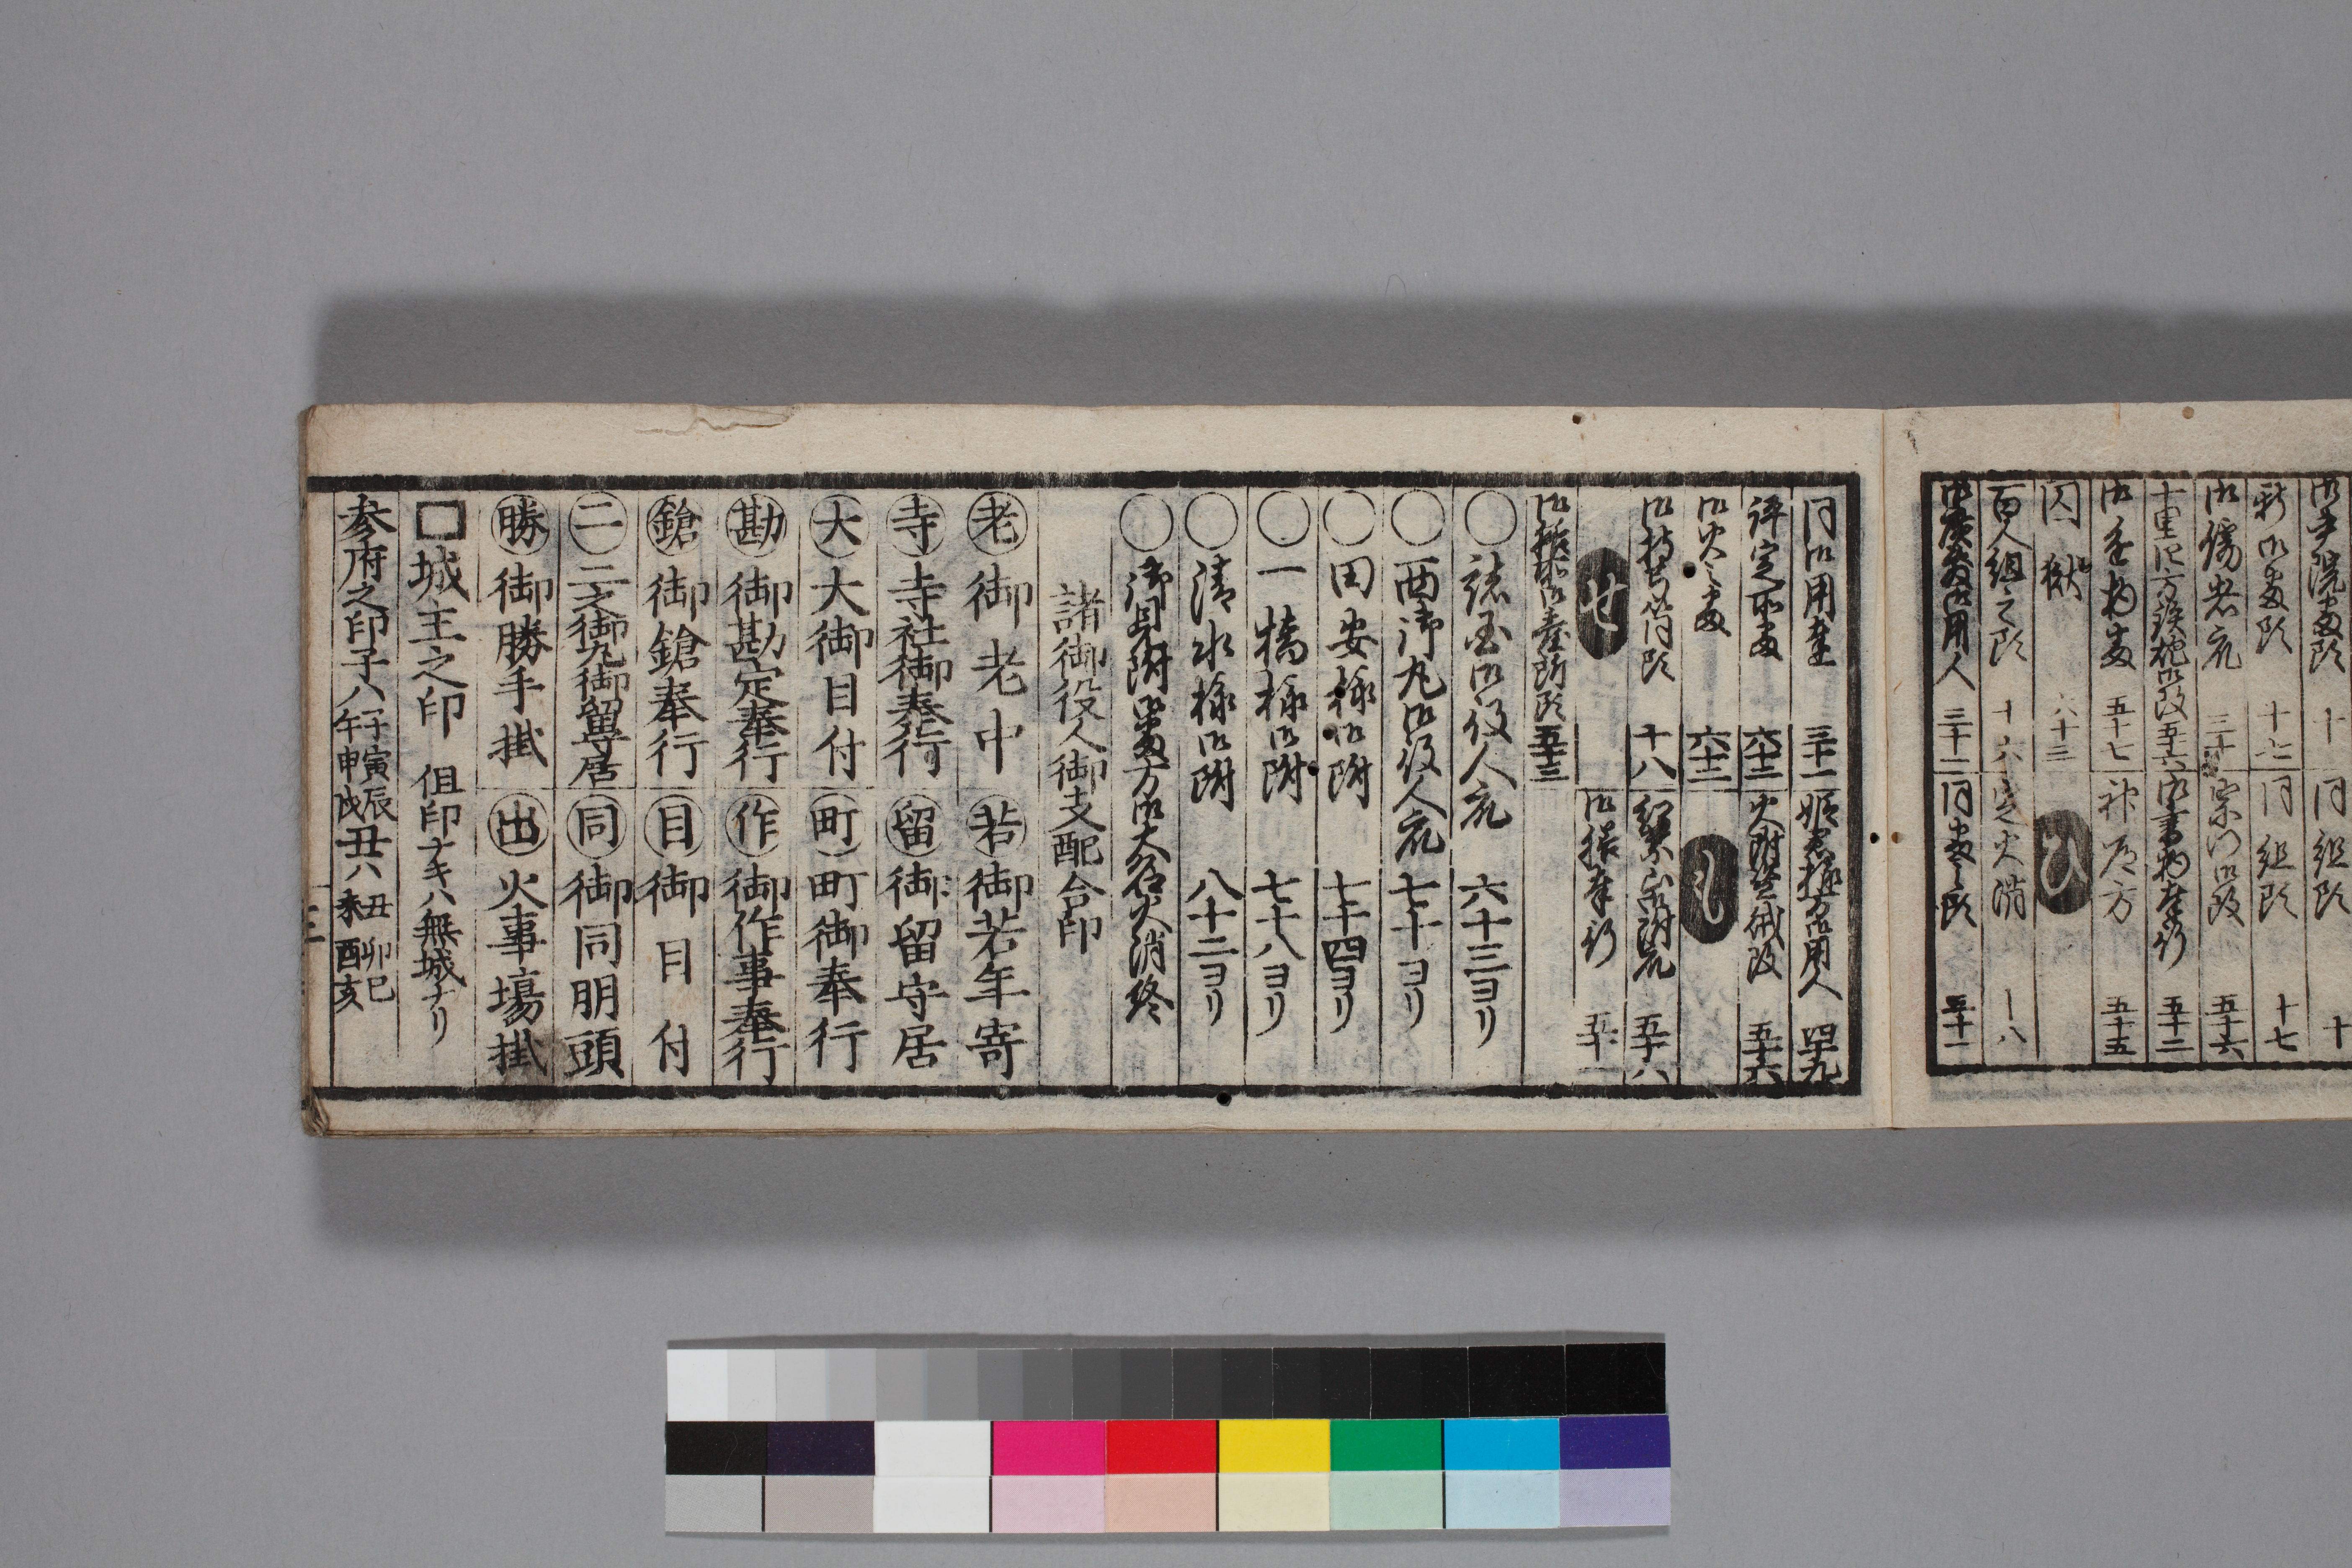 御手洗番頭 十 同組頭 十
新御番頭 十七 同組頭 十七
御儒者衆 三十 宗門御改 五十六
十里四方鉄炮御改 五十六 御書物奉行 五十二
御進物番 五十七 神道方 五十五
囚獄 六十三 ひ
百人組之頭 十六 定火消 十八
御広敷御用人 三十二 同番之頭 五十一
同御用達 三十一 姫君様方御用人 四十九
評定所番 六十三 火附盗賊改 五十六
御火之番 六十三 し
御持筒頭 十八 紅葉山御附衆 五十八
せ 御膳奉行 五十一
御膳所御台所頭 五十三
○諸国御役人衆 六十三ヨリ
○西御丸御役人衆 七十ヨリ
○田安様御附 七十四ヨリ
○一橋様御附 七十八ヨリ
○清水様御附 八十二ヨリ
○御見附御番方御大名火消終
諸御役人御支配合印
老 御老中 若 御若年寄
寺 寺社御奉行 留 御留守居
大 大御目付 町 町御奉行
勘 御勘定奉行 作 御作事奉行
鎗 御鎗奉行 目 御目付
二 二之御丸御留守居 同 御同朋頭
勝 御勝手掛 出 火事場掛
□城主之印 但印ナキハ無城ナリ
参府之印子ハ 子寅辰午申戌 丑ハ 丑卯巳未酉亥
三